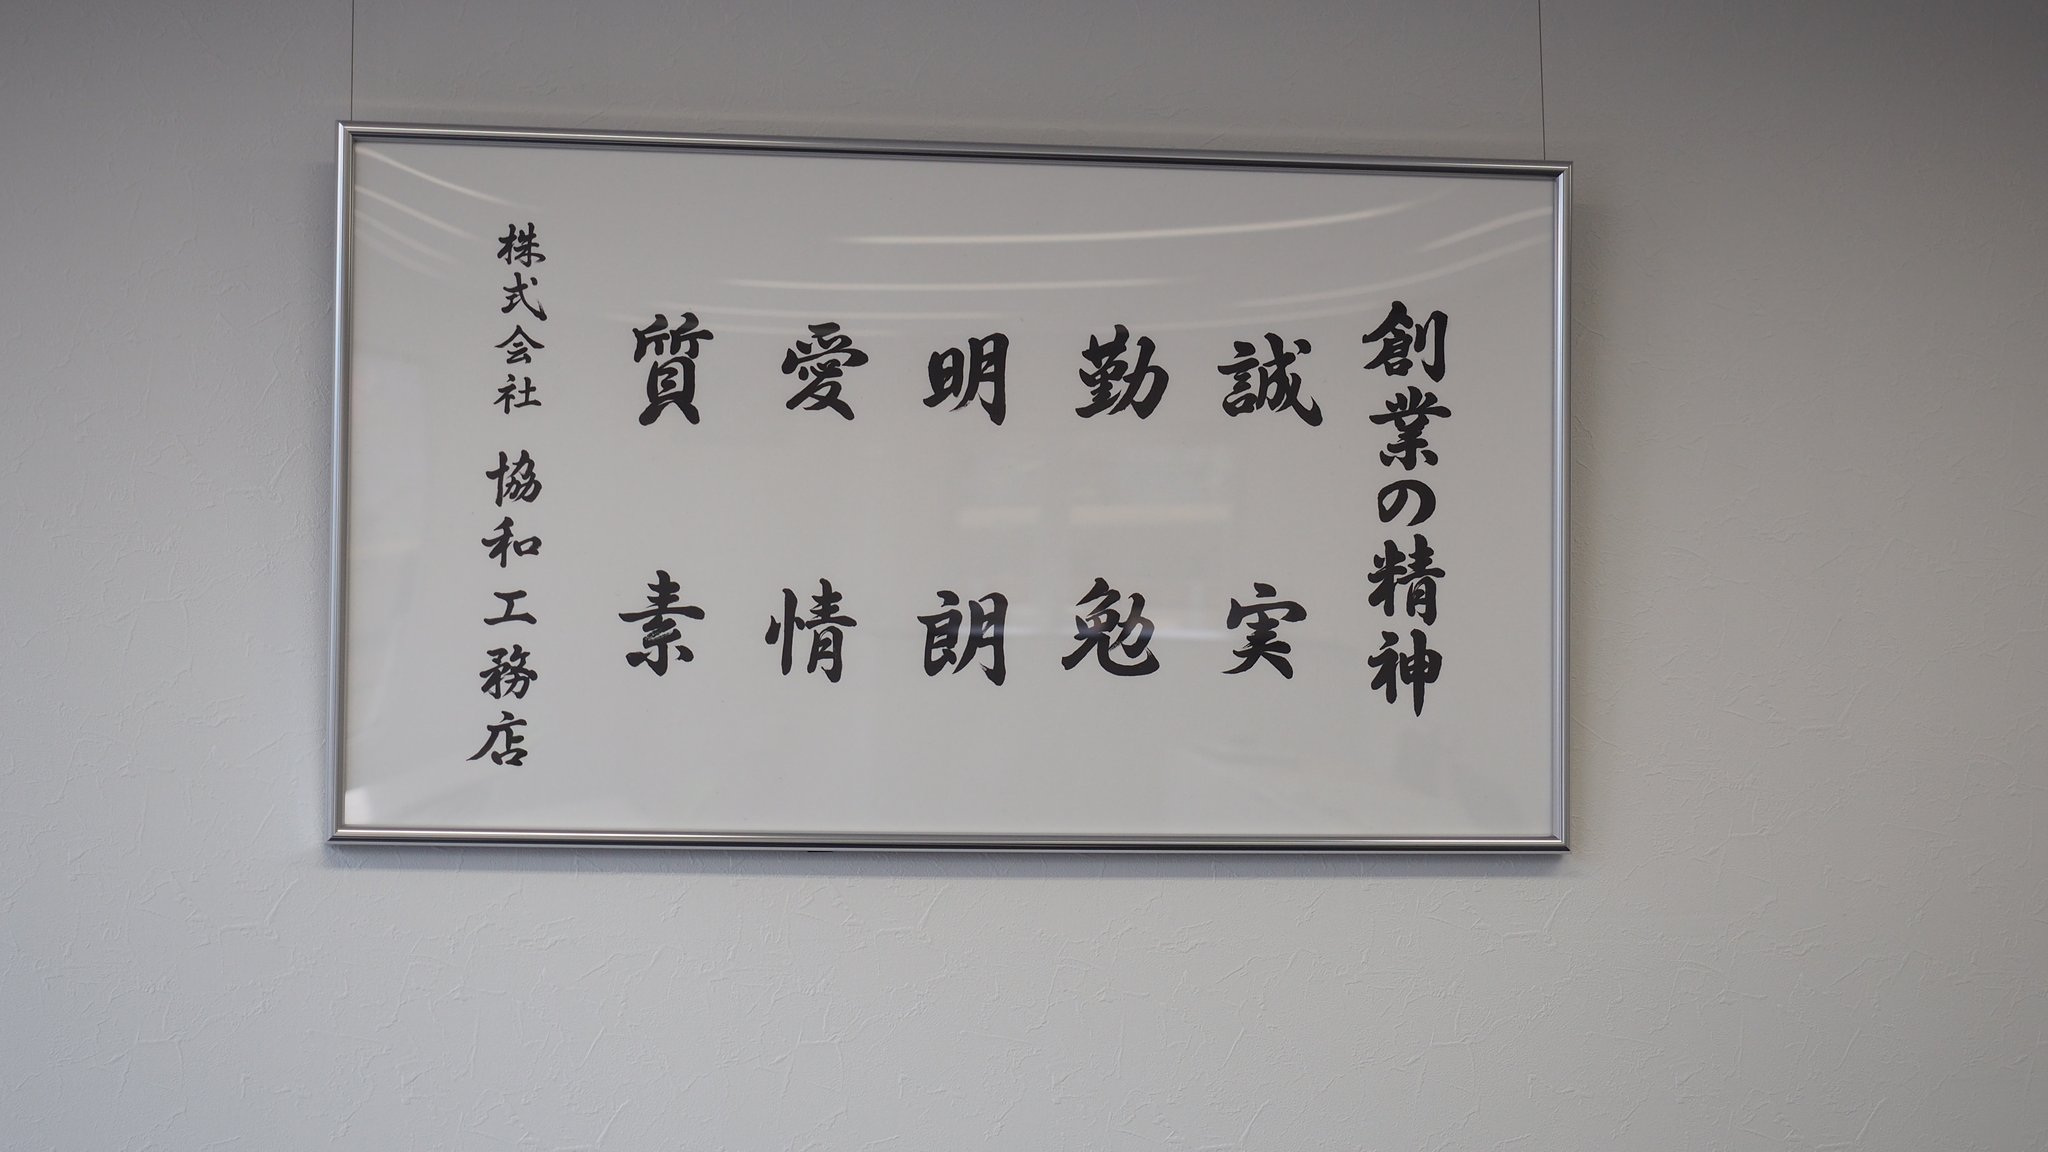 創業の精神
誠実
勤勉
明朗
愛情
質素
株式会社 協和工務店